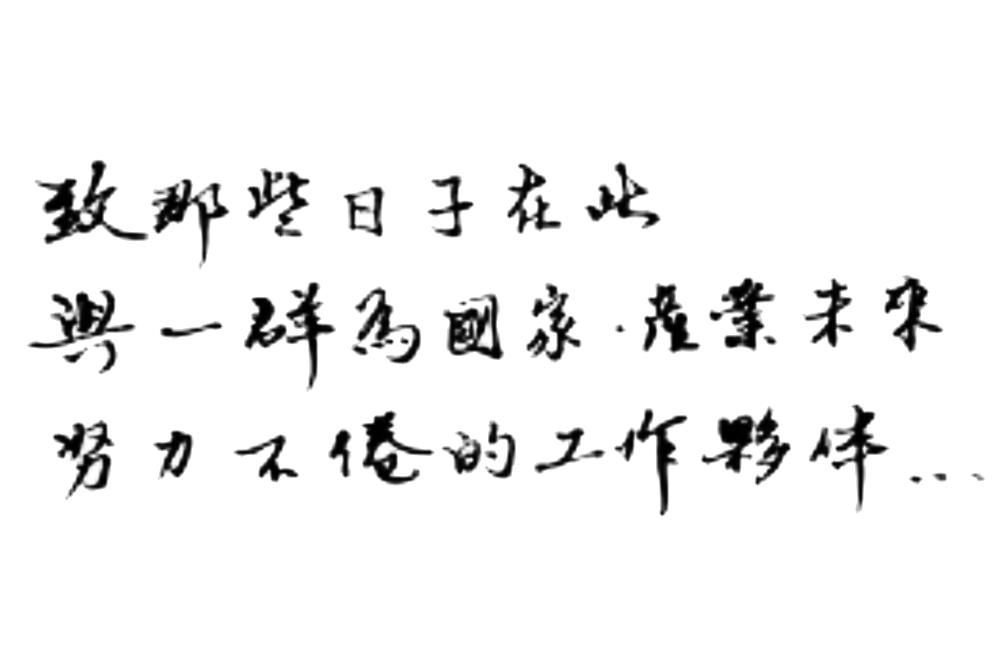 致那些日子在此
與一群為國家·產業未來
努力不倦的工作夥伴...